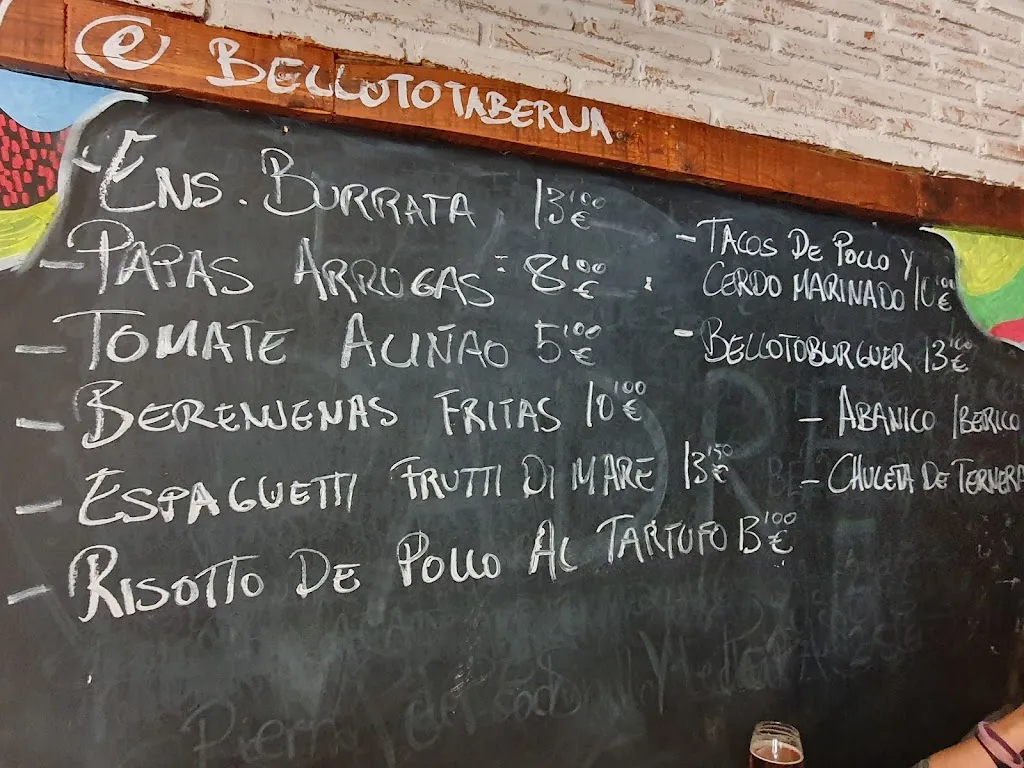 @BELLOTOTABERNA
-ENS. BURRATA 13'00€
-PAPAS ARRUGAS 8'00€
-TOMATE ALIÑAO 5'00€
-BERENJENAS FRITAS 10'00€
-ESPAGUETTI FRUTTI DI MARE 13'50€
-RISOTTO DE POLLO AL TARTUFO 13'00€
-TACOS DE POLLO Y
CERDO MARINADO 10'00€
-BELLOTOBURGUER 13'00€
-ABANICO IBERICO
-CHULETA DE TERNERA